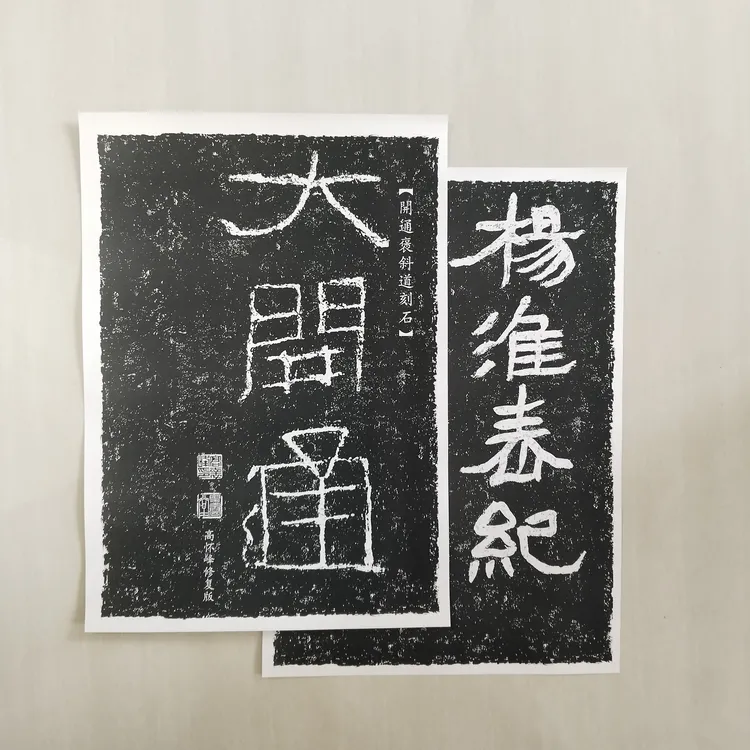 【開通褒斜道刻石】
大開通
高怀峰修复版
楊淮表紀